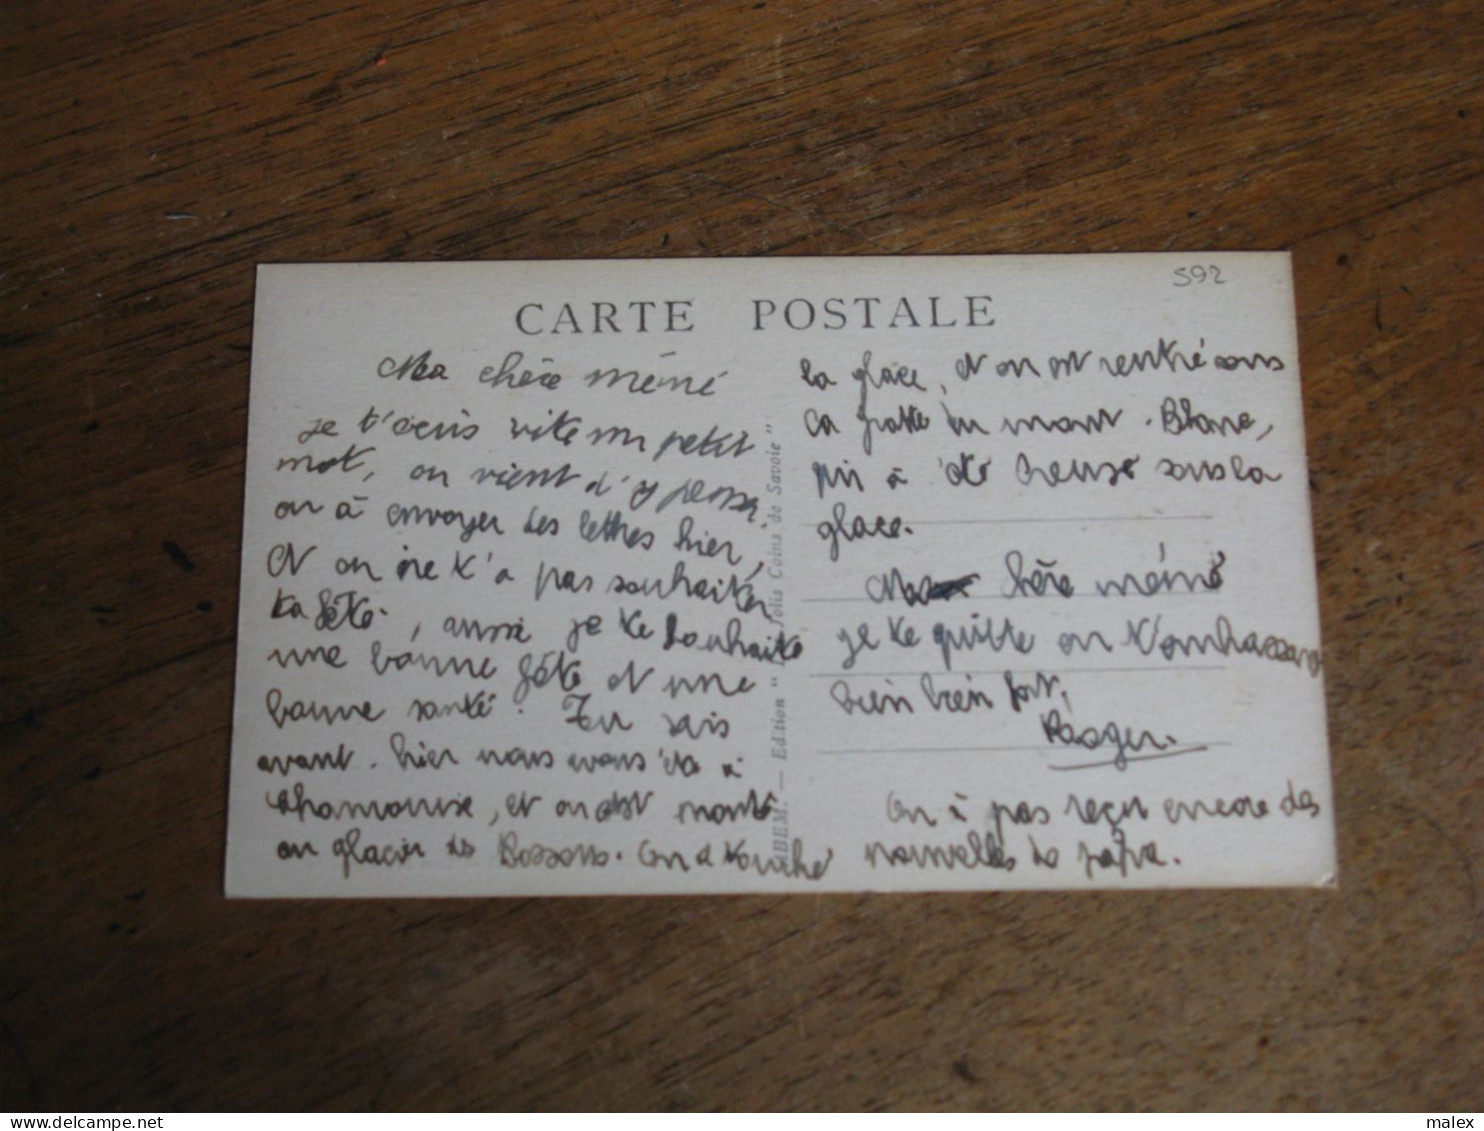 592
CARTE POSTALE
Ma chère mémé
je t'écris vite un petit
mot, on vient d'y penser.
on à envoyer des lettres hier,
et on ne t'a pas souhaiter
ta fête, aussi je te souhaite
une bonne fête et une
bonne santé. Tu sais
avant-hier nous avons été à
Chamonix, et on est monté
au glacier des Bossons. On a touché
la glace, et on est rentré sous
la grotte du mont-Blanc,
qui à été creusé sous la
glace.
Ma chère mémé
je te quitte en t'embrassant
bien bien fort,
Roger.
On à pas reçu encore des
nouvelles de papa.
ABEM. — Edition "Jolis Coins de Savoie"
malex